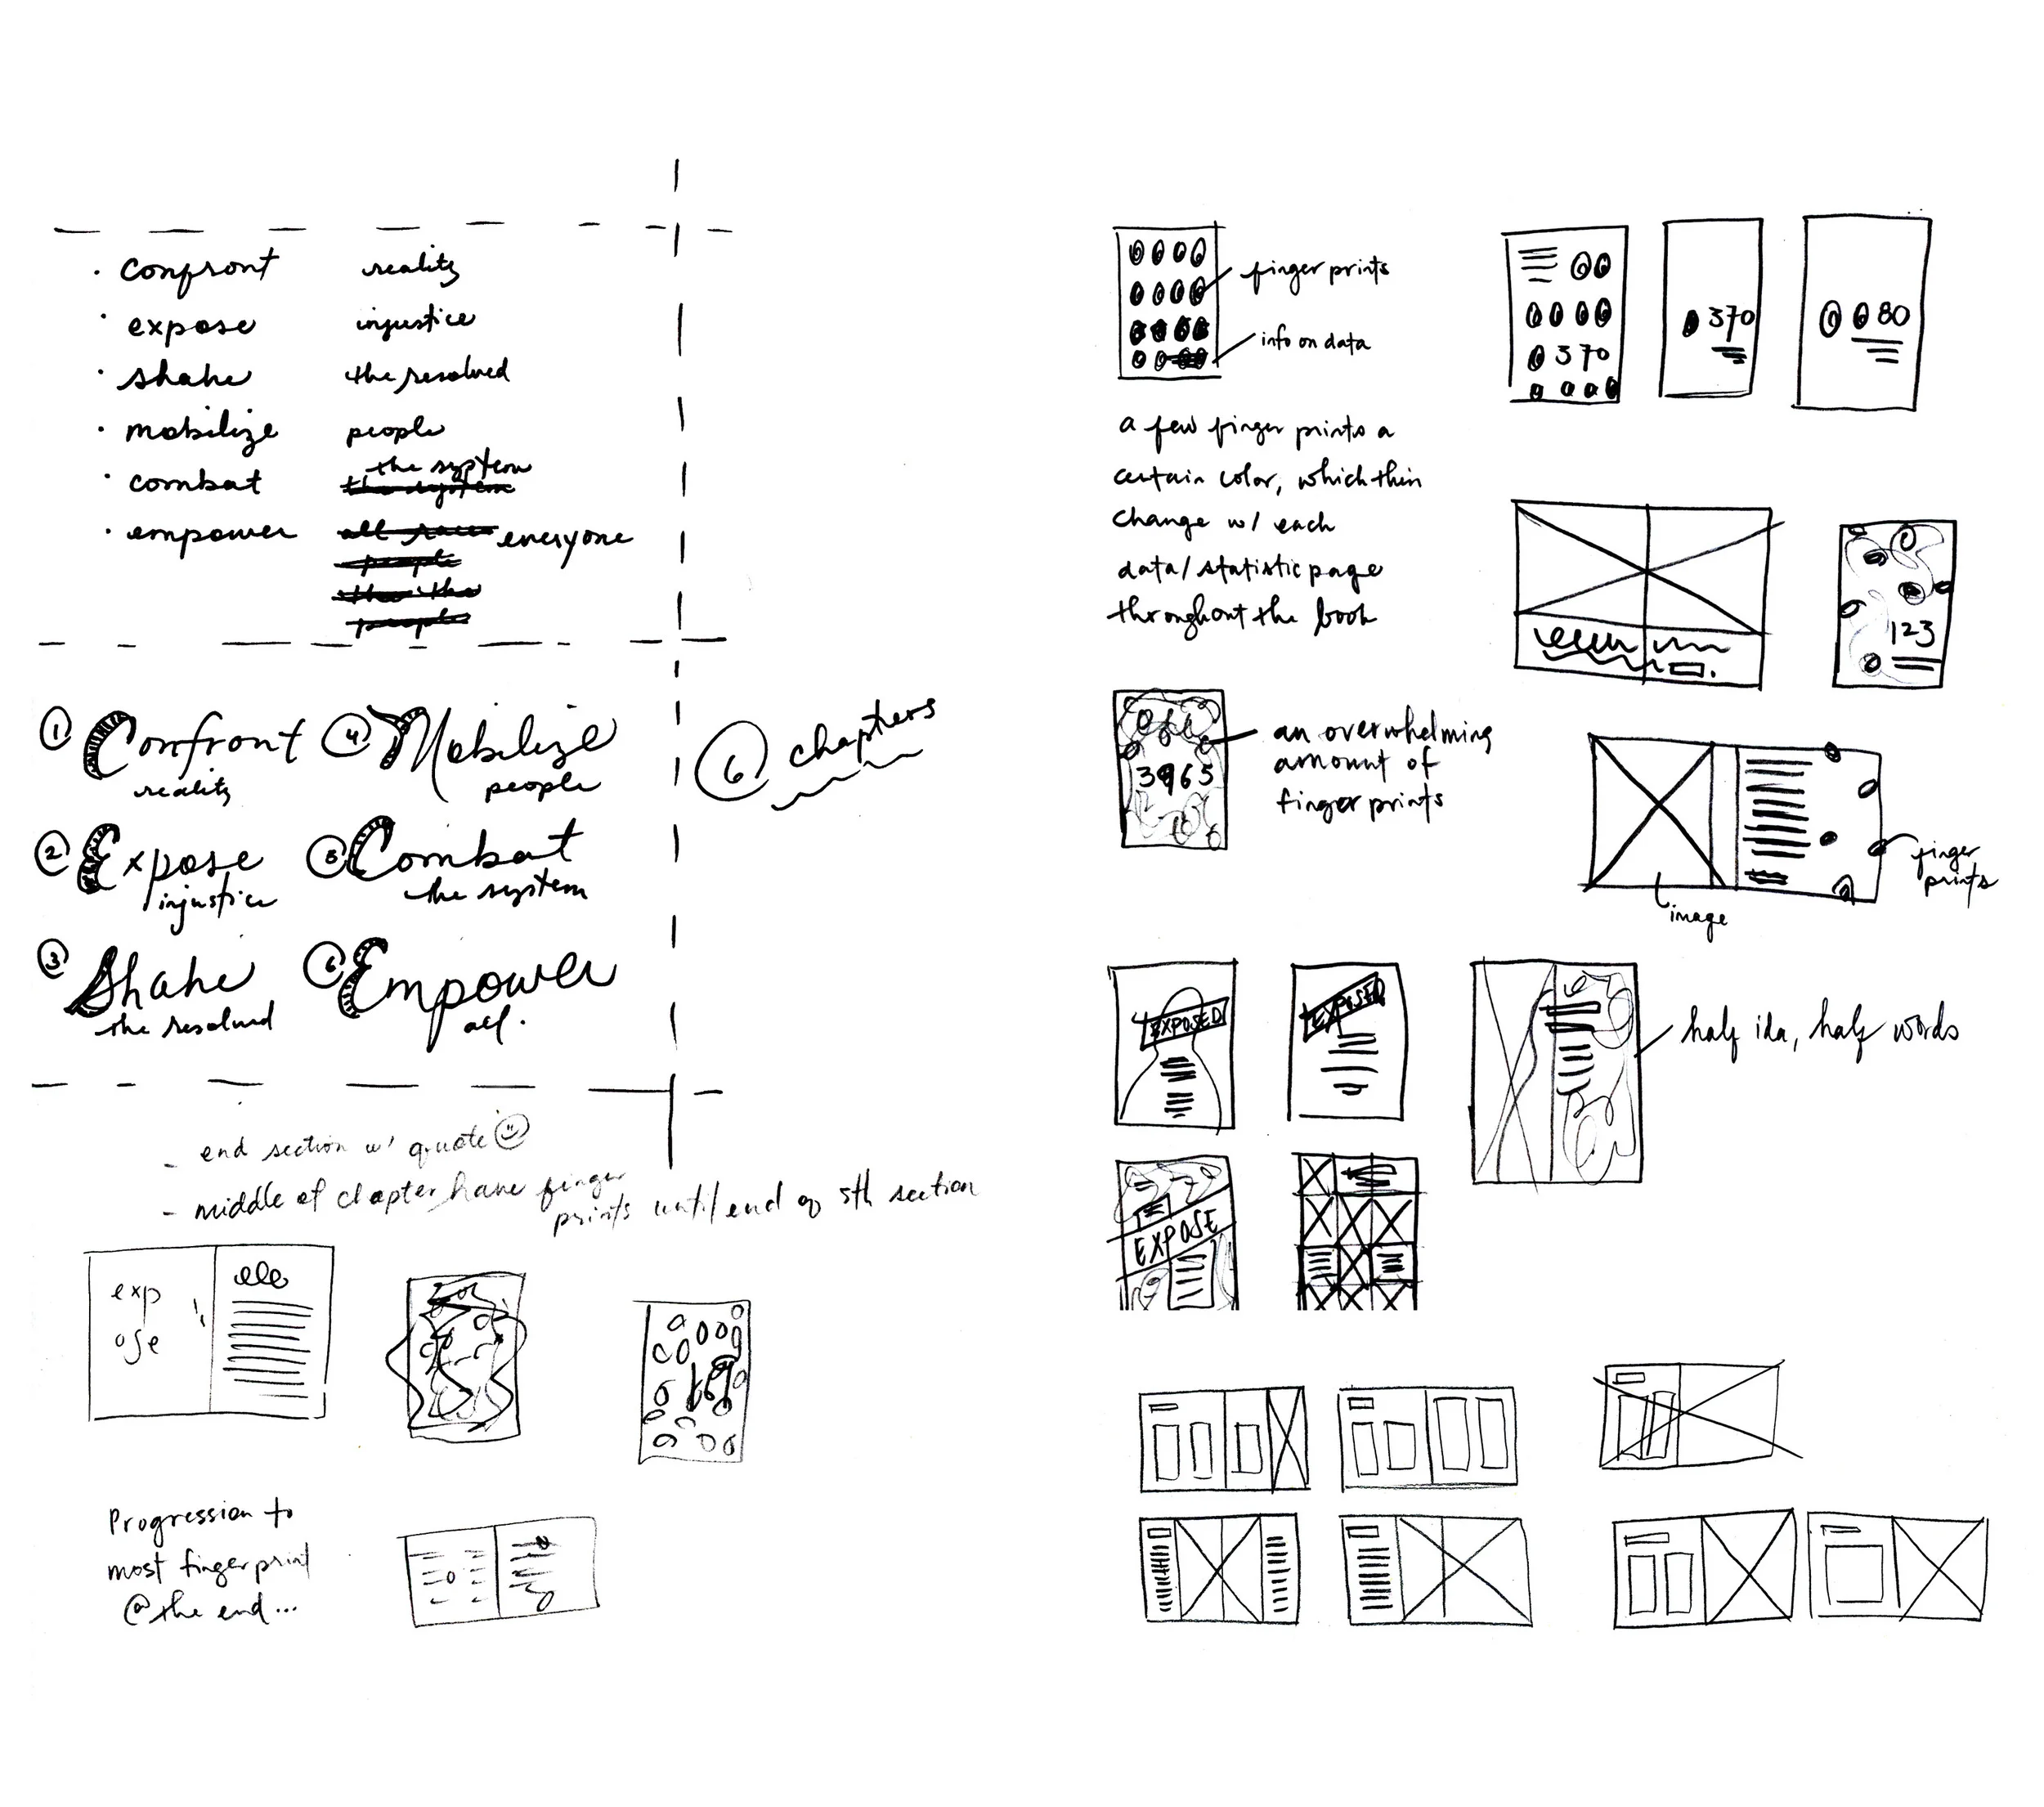 · confront reality
· expose injustice
· shake the resolved
· mobilize people
· combat the system
the system
· empower all races everyone
people
people
① Confront
reality
④ Mobilize
people
② Expose
injustice
⑤ Combat
the system
③ Shake
the resolved
⑥ Empower
all.
⑥ chapters
- end section w/ quote
- middle of chapter have finger
prints until end of 5th section
exp
ose
Progression to
most fingerprint
@ the end...
finger prints
info on data
370
370
80
a few finger prints a
certain color, which then
change w/ each
data/statistic page
throughout the book
123
3965
an overwhelming
amount of
finger prints
finger
prints
image
EXPOSED
EXPOSED
half ida, half words
EXPOSE